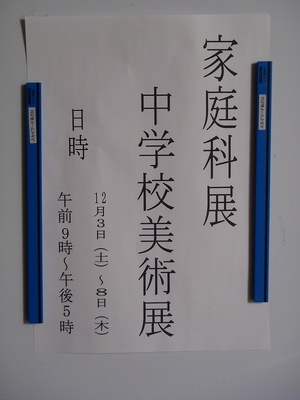 家庭科展
中学校美術展
日時
12月3日（土）～8日（木）
午前9時～午後5時